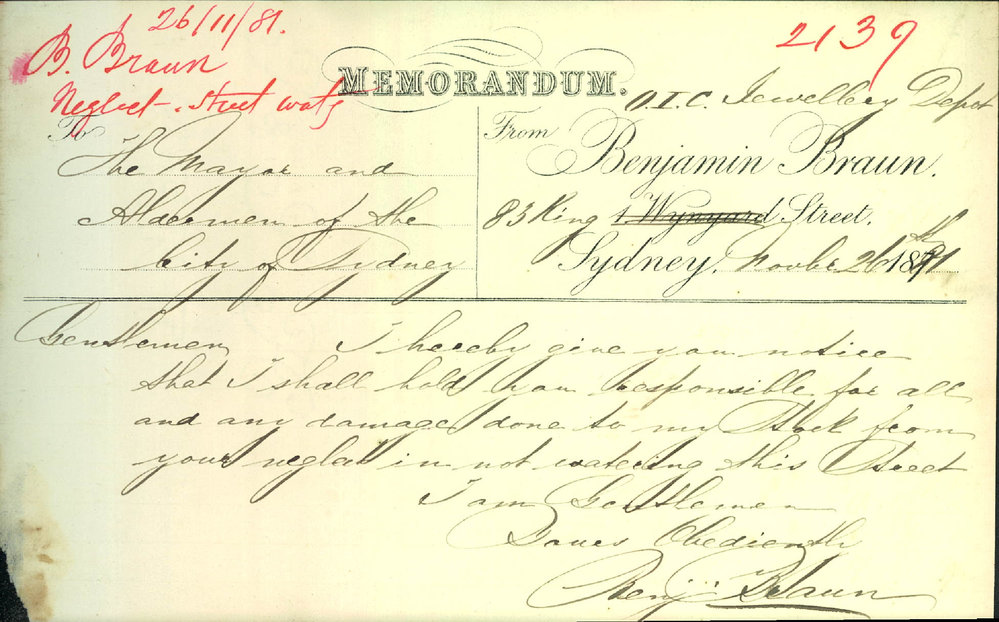 26/11/81.
B. Braun
Neglect - Street watg
2139
MEMORANDUM.
To
The Mayor and
Aldermen of the
City of Sydney
O.I.C. Jewellery Depot
From
Benjamin Braun.
83 King 1 Wynyard Street.
Sydney, Novbr 26th 1881
Gentlemen I hereby give you notice
that I shall hold you responsible for all
and any damage done to my Stock from
your neglect in not watering this Street
I am Gentlemen
Yours Obediently
Benj: Braun